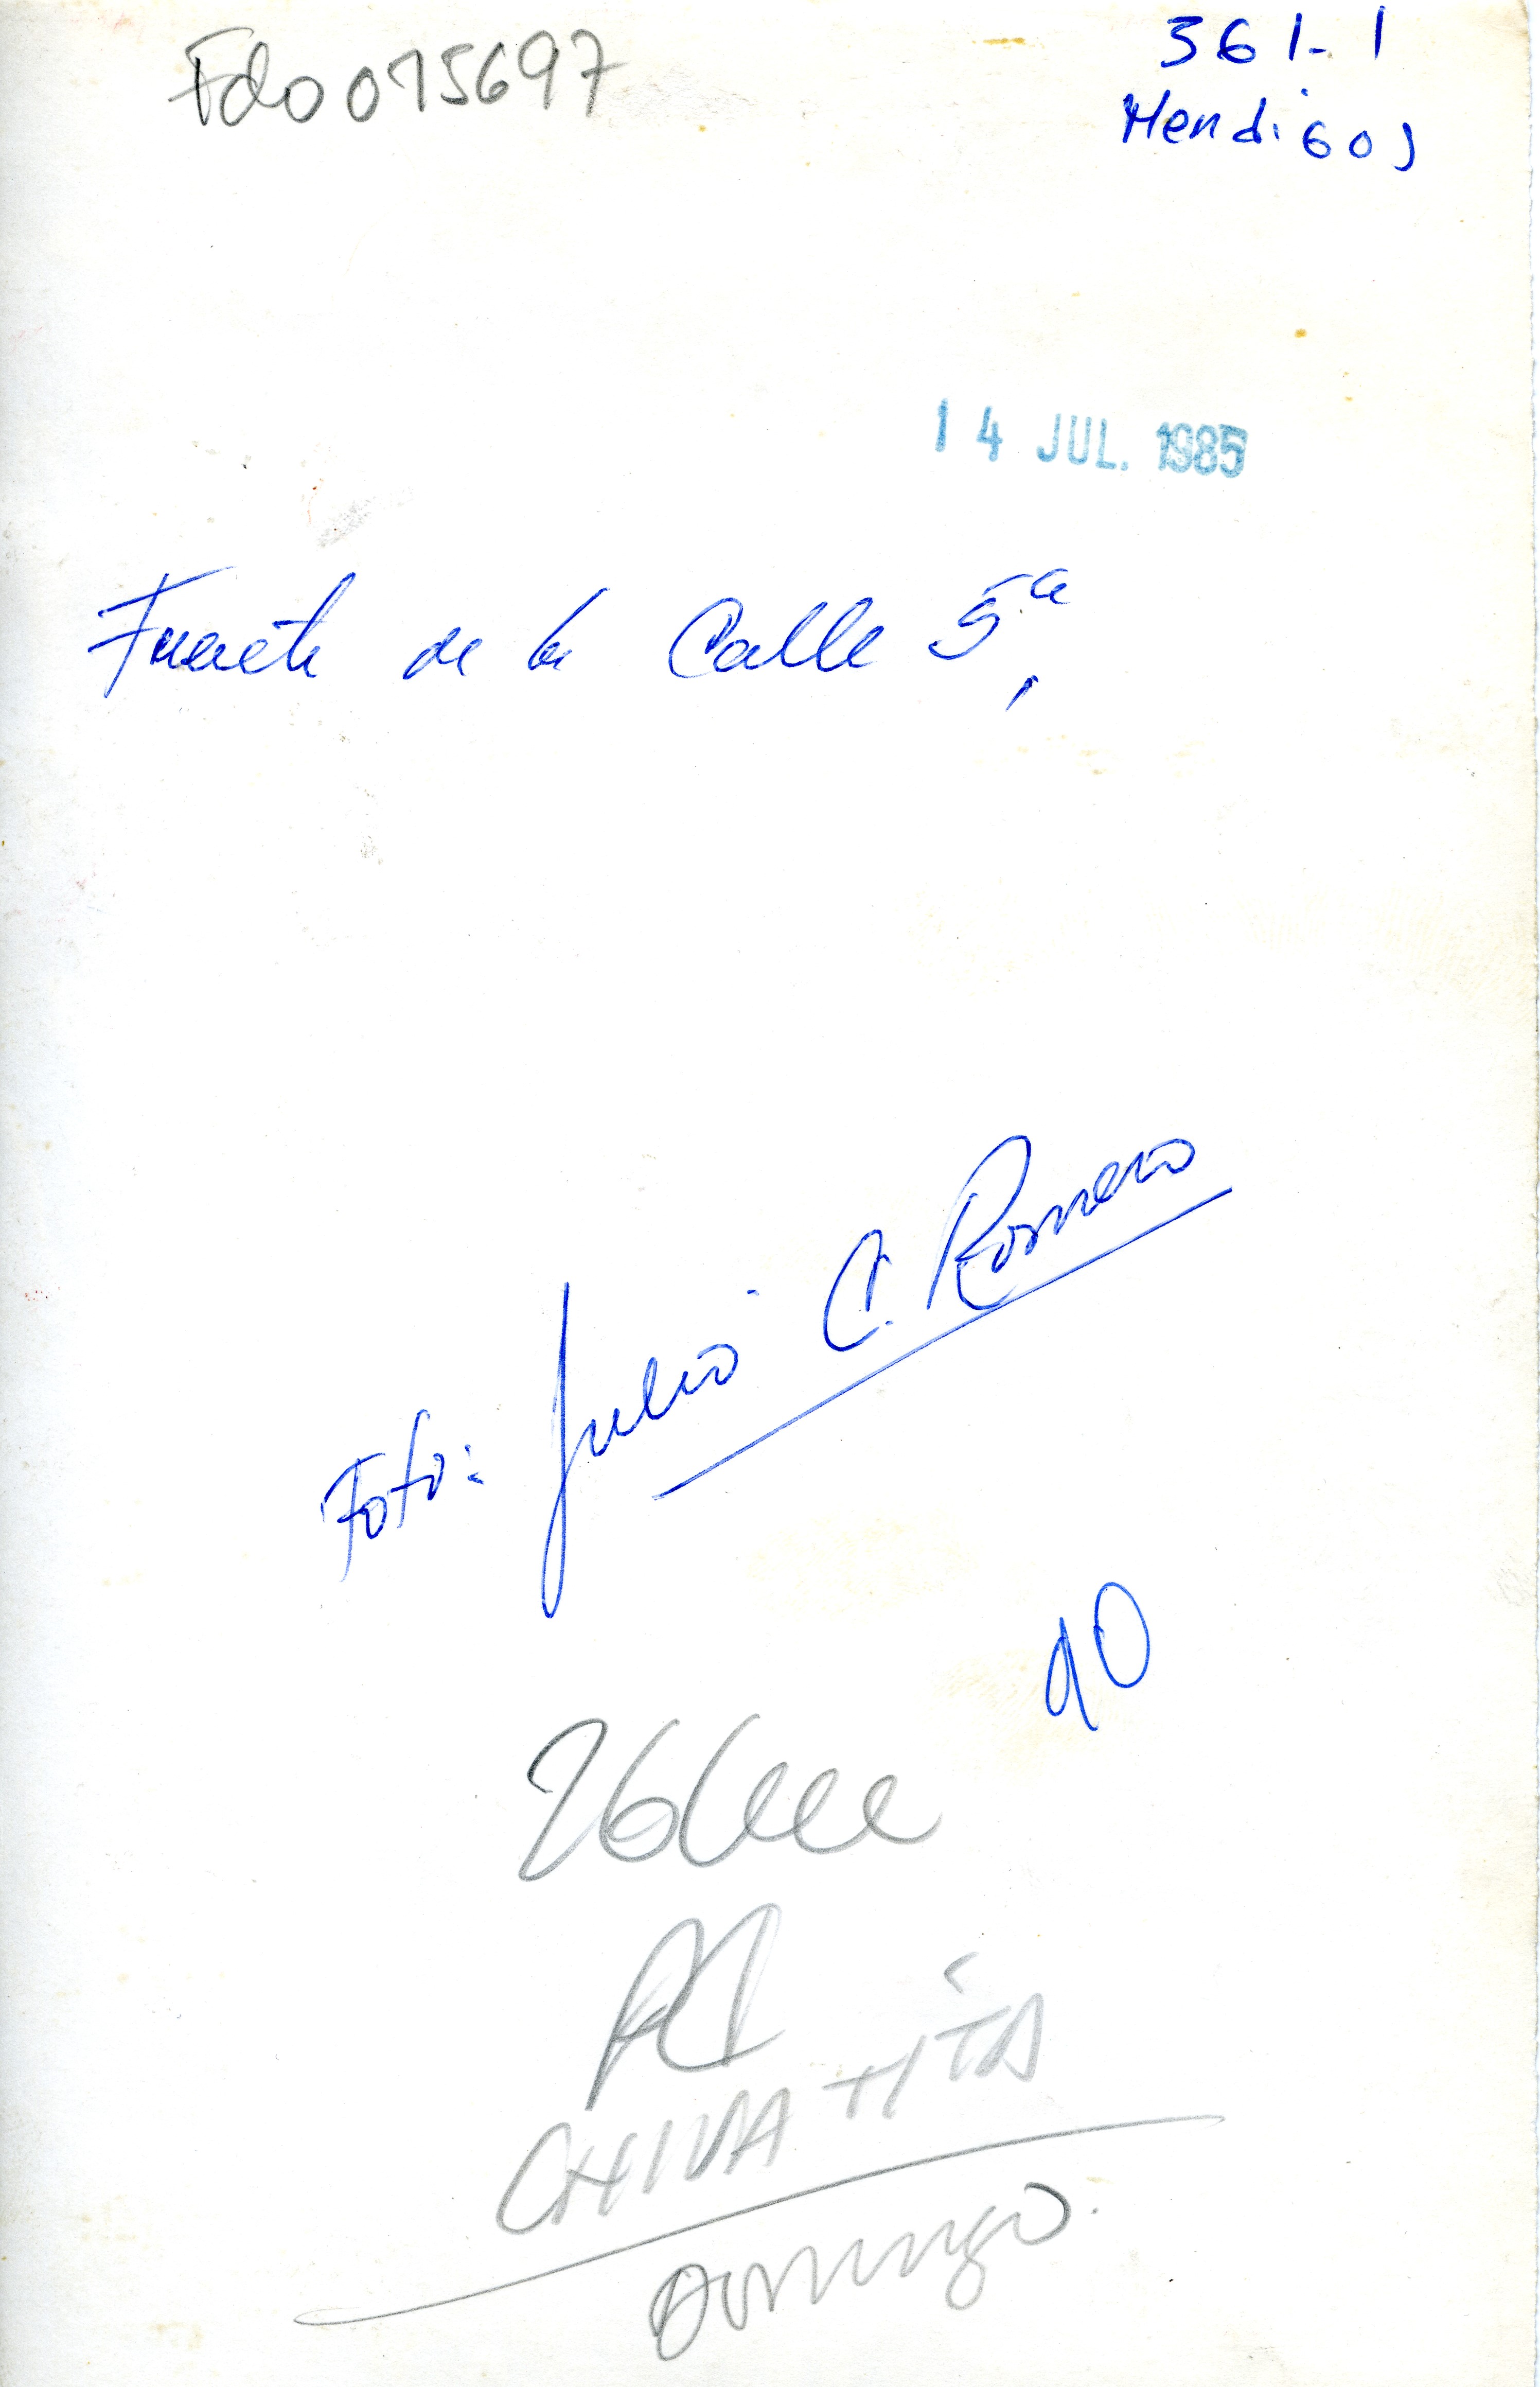 Fdo 015697
361-1
Mendigos
14 JUL. 1985
de la Calle 5a,
Foto: Julio C. Romero
10
CHIVATITA
Domingo.